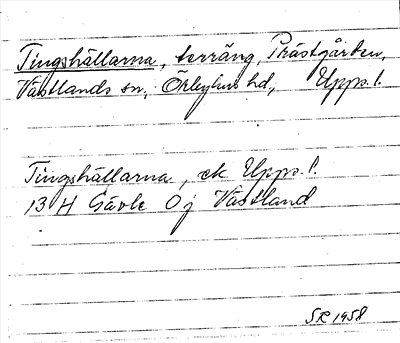 Tingshällarna, terräng, Prästgården,
Västlands sn, Örbyhus hd, Upps. l.
Tingshällarna, ek Upps. l.
13 H Gävle Oj Västland
SR 1958